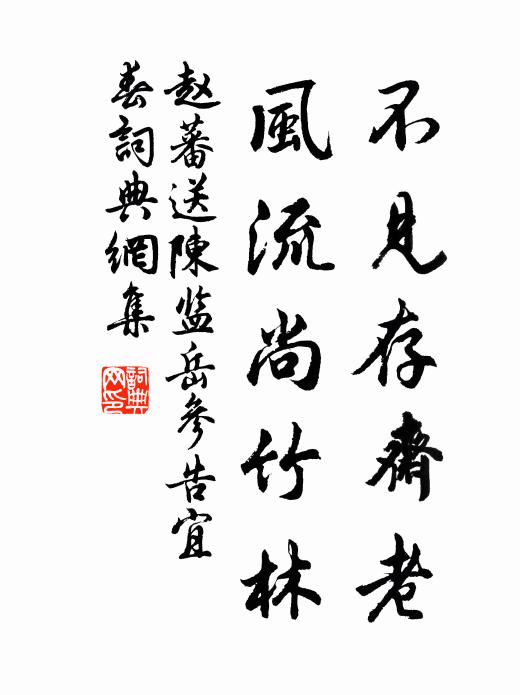 不見存齋老
風流尚竹林
赵蕃送陳监岳參告宜
春詞典網集
詞典网印